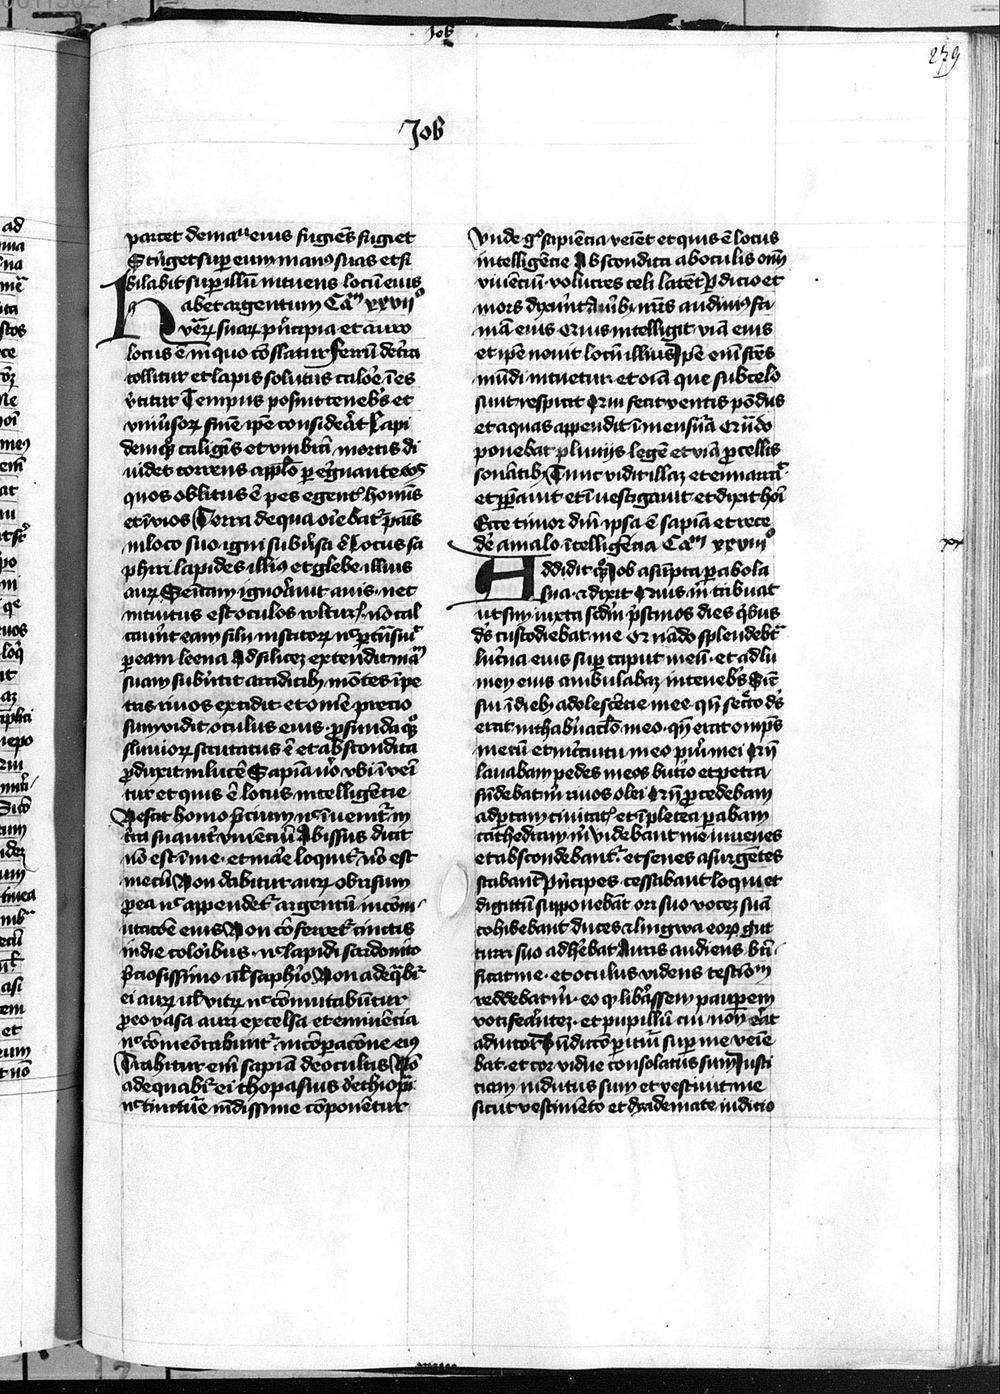 Job
279
Job
parcet de manu eius fugiens fugiet
Stringet super eum manus suas et si
bilabit super illum intuens locum eius
Habet argentum Cam xxviiio
venarum suarum principia et auro
locus est in quo conflatur Ferrum de terra
tollitur et lapis solutus calore in es
vertitur Tempus posuit tenebris et
universorum finem ipse considerat Lapi
dem quoque caliginis et umbram mortis di
videt torrens a populo peregrinante eos
quos oblitus est pes egentis hominis
et invios Terra de qua oriebatur panis
in loco suo igni subversa est Locus sa
phiri lapides illius et glebe illius
aurum Semitam ignoravit avis nec
intuitus est oculos vulturis non cal
caverunt eam filii institorum nec pertransivit
per eam leena Ad silicem extendit manum
suam subvertit a radicibus montes in pe
tris rivos excidit et omne precio
sum vidit oculus eius profunda quoque
fluviorum scrutatus est et abscondita
produxit in lucem Sapiencia vero ubi inveni
tur et quis est locus intelligentie
Nescit homo precium eius nec invenitur in
terra suaviter vivencium Abissus dicit
non est in me et mare loquitur non est
mecum Non dabitur aurum obrisum
pro ea nec appendetur argentum in com
mutacione eius Non conferetur tinctis
indie coloribus nec lapidi sardonico
preciosissimo vel saphiro Non adequabitur
ei aurum vel vitrum nec commutabuntur
pro eo vasa auri excelsa et eminencia
nec commemorabuntur in comparacione eius
Trahitur enim sapiencia de occultis Non
adequabitur ei thopasius de ethiopia
nec tincture mundissime componetur
Unde ergo sapiencia veniet et quis est locus
intelligencie Abscondita ab oculis omnium
vivencium volucres celi latet Perdicio et
mors dixerunt Auribus nostris audivimus fa
mam eius Deus intelligit viam eius
et ipse novit locum illius Ipse enim fines
mundi intuetur et omnia que sub celo
sunt respicit Qui fecit ventis pondus
et aquas appendit in mensura Quando
ponebat pluviis legem et viam procellis
sonantibus Tunc vidit illam et enarravit
et preparavit et investigavit et dixit homini
Ecce timor domini ipsa est sapiencia et rece
dere a malo intelligencia Cam xxviiio
Addidit quoque Job assumpta parabola
sua et dixit Quis mihi tribuat
ut sim iuxta secundum pristinos dies quibus
deus custodiebat me Quando splendebat
lucerna eius super caput meum et ad lu
men eius ambulabam in tenebris Sicut
fui in diebus adolescencie mee quando secreto deus
erat in thabernaculo meo quando erat omnipotens
mecum et in circuitu meo pueri mei Quando
lavabam pedes meos butiro et petra
fundebat mihi rivos olei Quando procedebam
ad portam civitatis et in platea parabam
cathedram mihi videbant me iuvenes
et abscondebantur et senes assurgentes
stabant Principes cessabant loqui et
digitum supponebant ori suo vocem suam
cohibebant duces et lingwa eorum gut
turi suo adherebat Auris audiens beati
ficat me et oculus videns testimonium
reddebat mihi eo quod liberassem pauperem
vociferantem et pupillum cui non erat
adiutor Benedictio perituri super me venie
bat et cor vidue consolatus sum Iusti
ciam indutus sum et vestivit me
sicut vestimento et dyademate iudicio